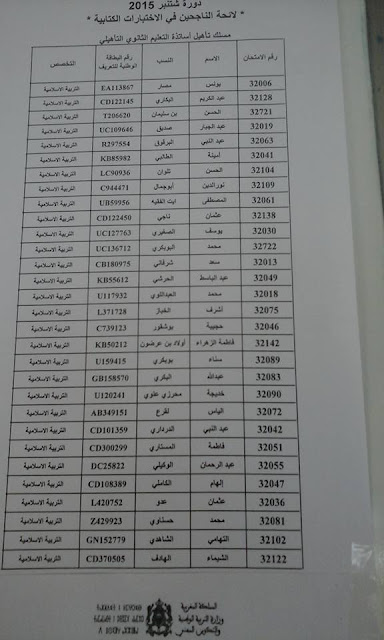 دورة شتنبر 2015
" لائحة الناجحين في الاختبارات الكتابية "
مسلك تأهيل أساتذة التعليم الثانوي التأهيلي
رقم الامتحان الاسم النسب رقم البطاقة الوطنية للتعريف التخصص
32006 يونس مصار EA113867 التربية الاسلامية
32128 عبد الكريم البكاري CD122145 التربية الاسلامية
32721 الحسن بن سليمان T206620 التربية الاسلامية
32019 عبد الجبار صديق UC109646 التربية الاسلامية
32063 عبد النبي البرقوق R297554 التربية الاسلامية
32041 أمينة الطالبي KB85982 التربية الاسلامية
32104 الحسن تلوان LC90936 التربية الاسلامية
32109 نورالدين أبوجمال C944471 التربية الاسلامية
32061 المصطفى ايت الفقيه UB59956 التربية الاسلامية
32138 عثمان ناجي CD122450 التربية الاسلامية
32030 يوسف الصفيري UC127763 التربية الاسلامية
32722 محمد البوبكري UC136712 التربية الاسلامية
32013 سعد شرقاني CB180975 التربية الاسلامية
32049 عبد الباسط الحرشي KB55612 التربية الاسلامية
32018 محمد العبداللوي U117932 التربية الاسلامية
32075 أشرف الخباز L371728 التربية الاسلامية
32046 حجيبة بوشقور C739123 التربية الاسلامية
32142 فاطمة الزهراء أولاد بن عرضون KB50212 التربية الاسلامية
32089 سناء بوبكري U159415 التربية الاسلامية
32083 عبدالله البكري GB158570 التربية الاسلامية
32090 خديجة محرزي علوي U120241 التربية الاسلامية
32072 الياس لقرع AB349151 التربية الاسلامية
32042 عبد النبي الدرداري CD101359 التربية الاسلامية
32051 فاطمة المستاري CD300299 التربية الاسلامية
32055 عبد الرحمان الوكيلي DC25822 التربية الاسلامية
32047 إلهام الكاملي CD108389 التربية الاسلامية
32036 عثمان عدو L420752 التربية الاسلامية
32081 محمد حسناوي Z429923 التربية الاسلامية
32102 التهامي الشاهدي GN152779 التربية الاسلامية
32122 الشيماء الهادف CD370505 التربية الاسلامية
المملكة المغربية
وزارة التربية الوطنية
والتكوين المهني